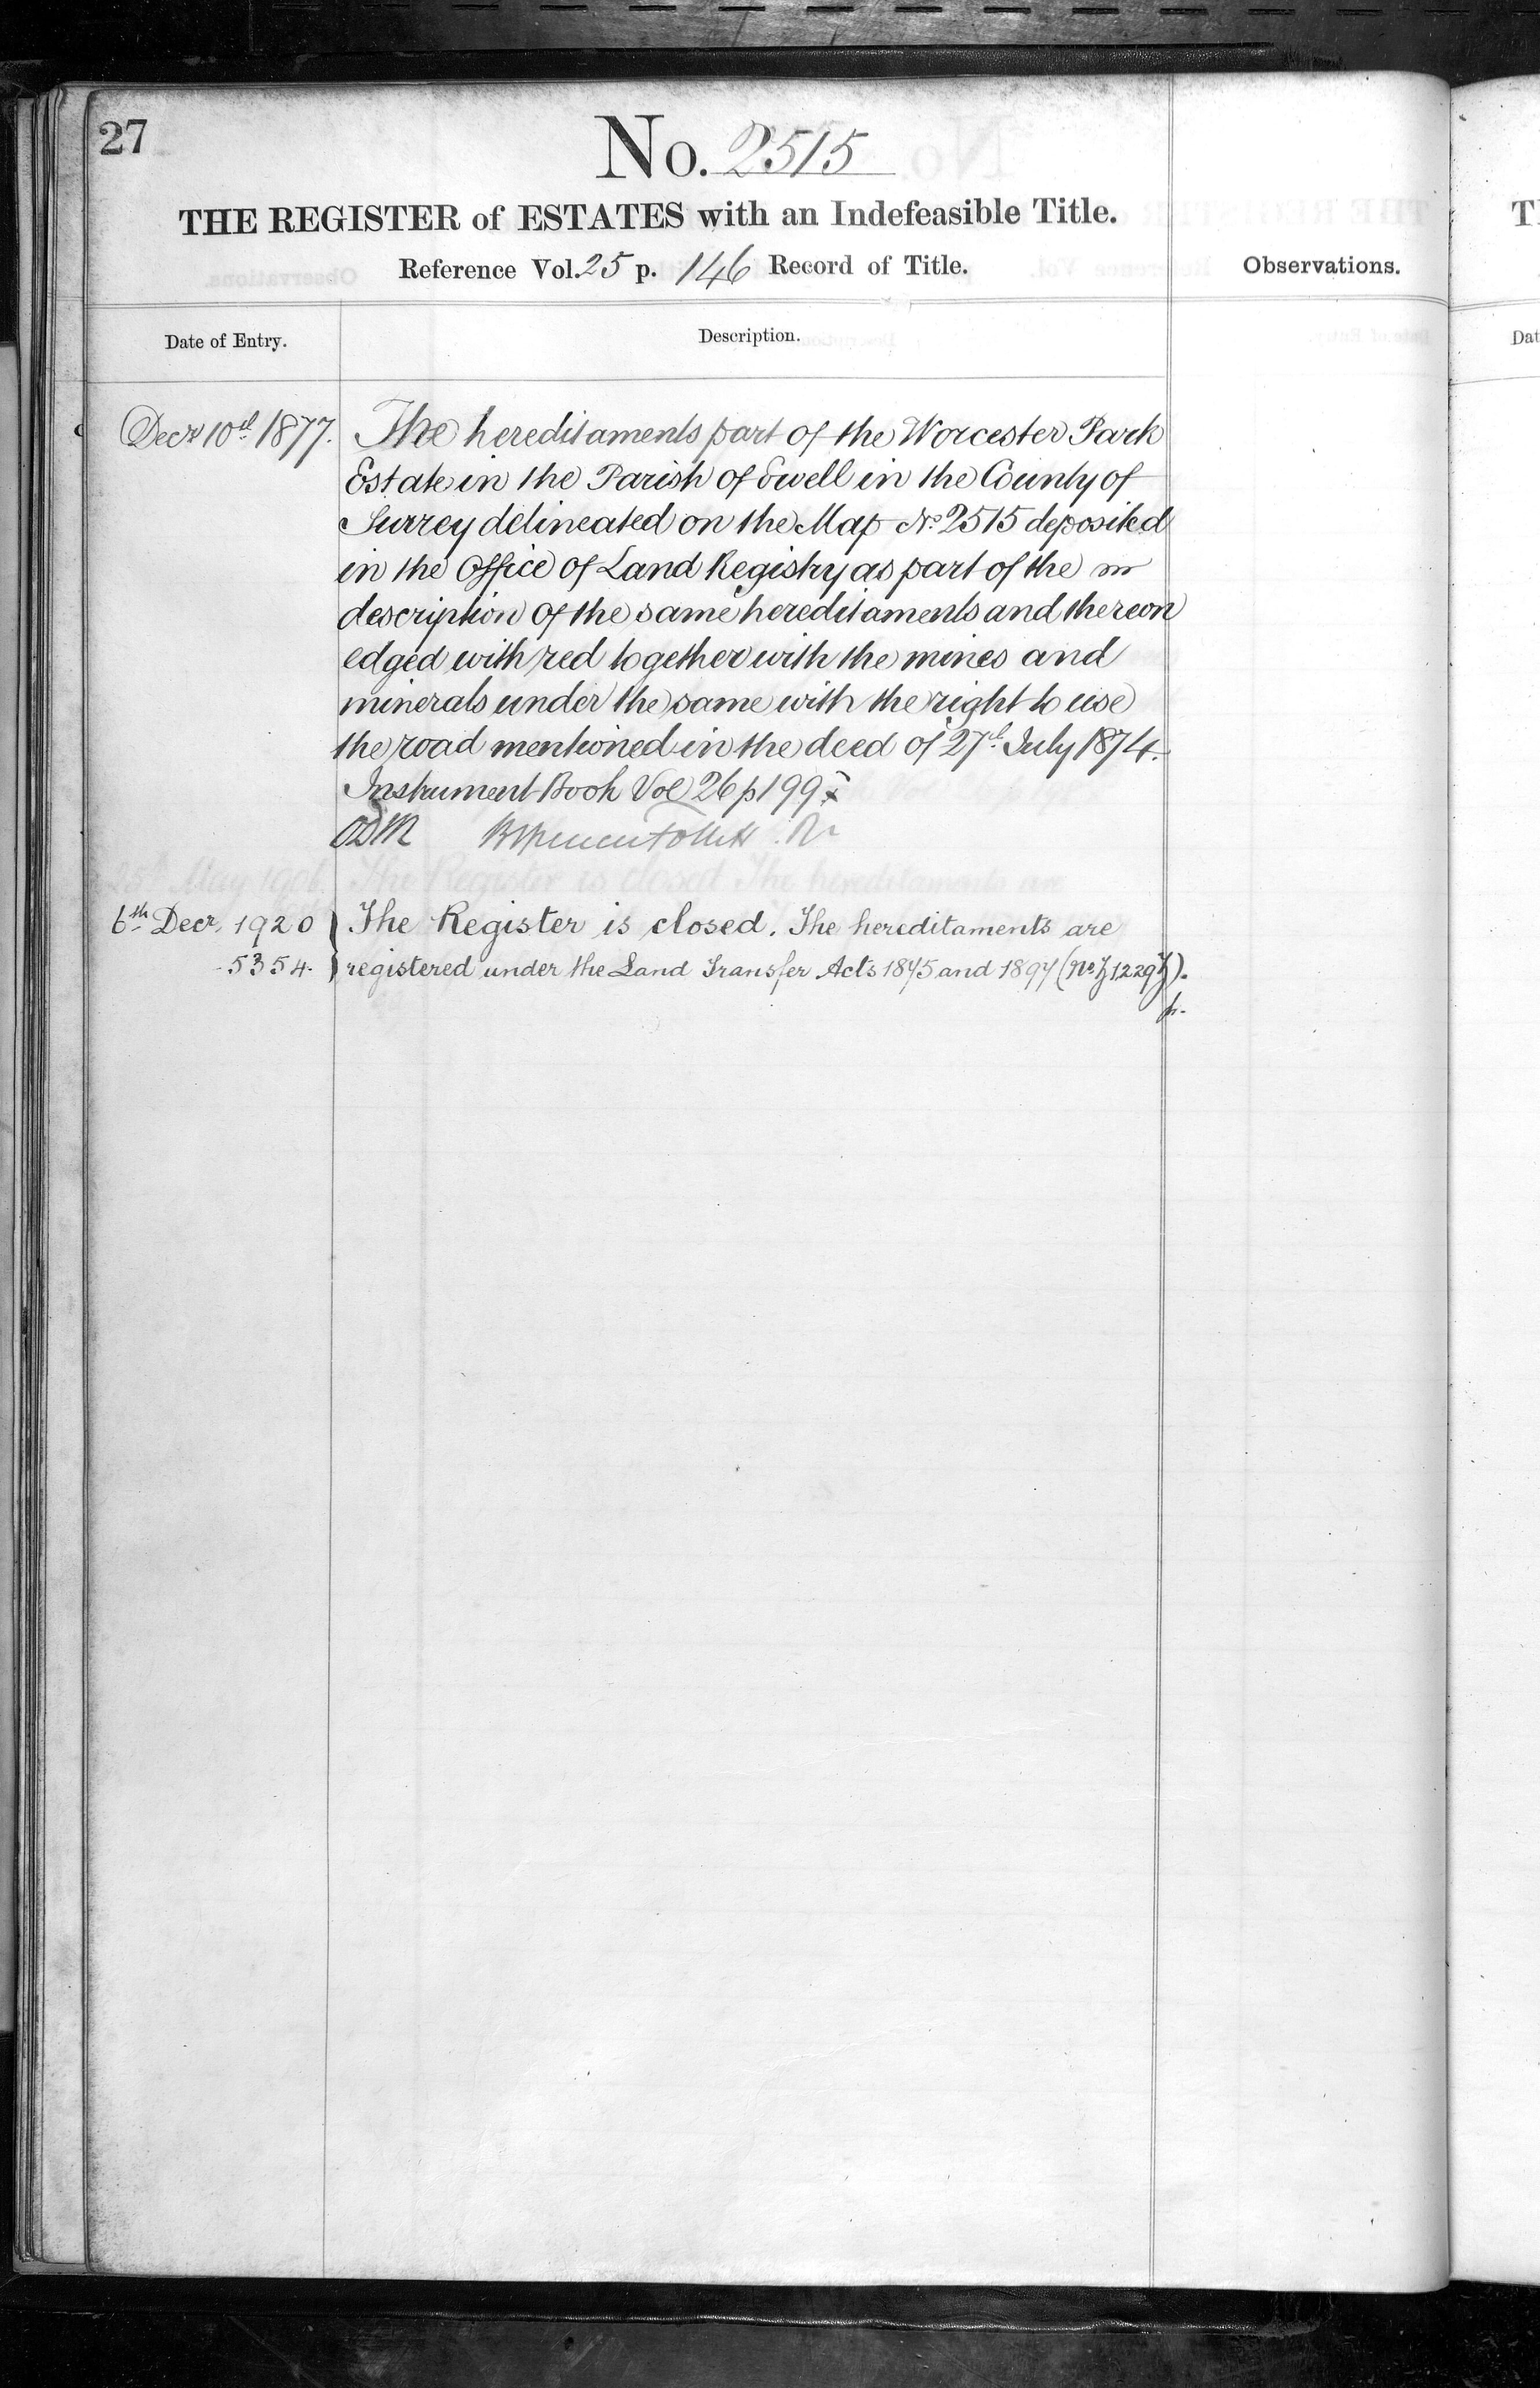 27
No. 2515
THE REGISTER of ESTATES with an Indefeasible Title.
Reference Vol. 25 p. 146 Record of Title.
Observations.
Date of Entry.
Description.
Decr 10th 1877. The hereditaments part of the Worcester Park
Estate in the Parish of Ewell in the County of
Surrey delineated on the Map No 2515 deposited
in the Office of Land Registry as part of the
description of the same hereditaments and thereon
edged with red together with the mines and
minerals under the same with the right to use
the road mentioned in the deed of 27th July 1874.
Instrument Book Vol 26 p 199
6th Decr. 1920 The Register is closed. The hereditaments are
5354. registered under the Land Transfer Acts 1875 and 1897